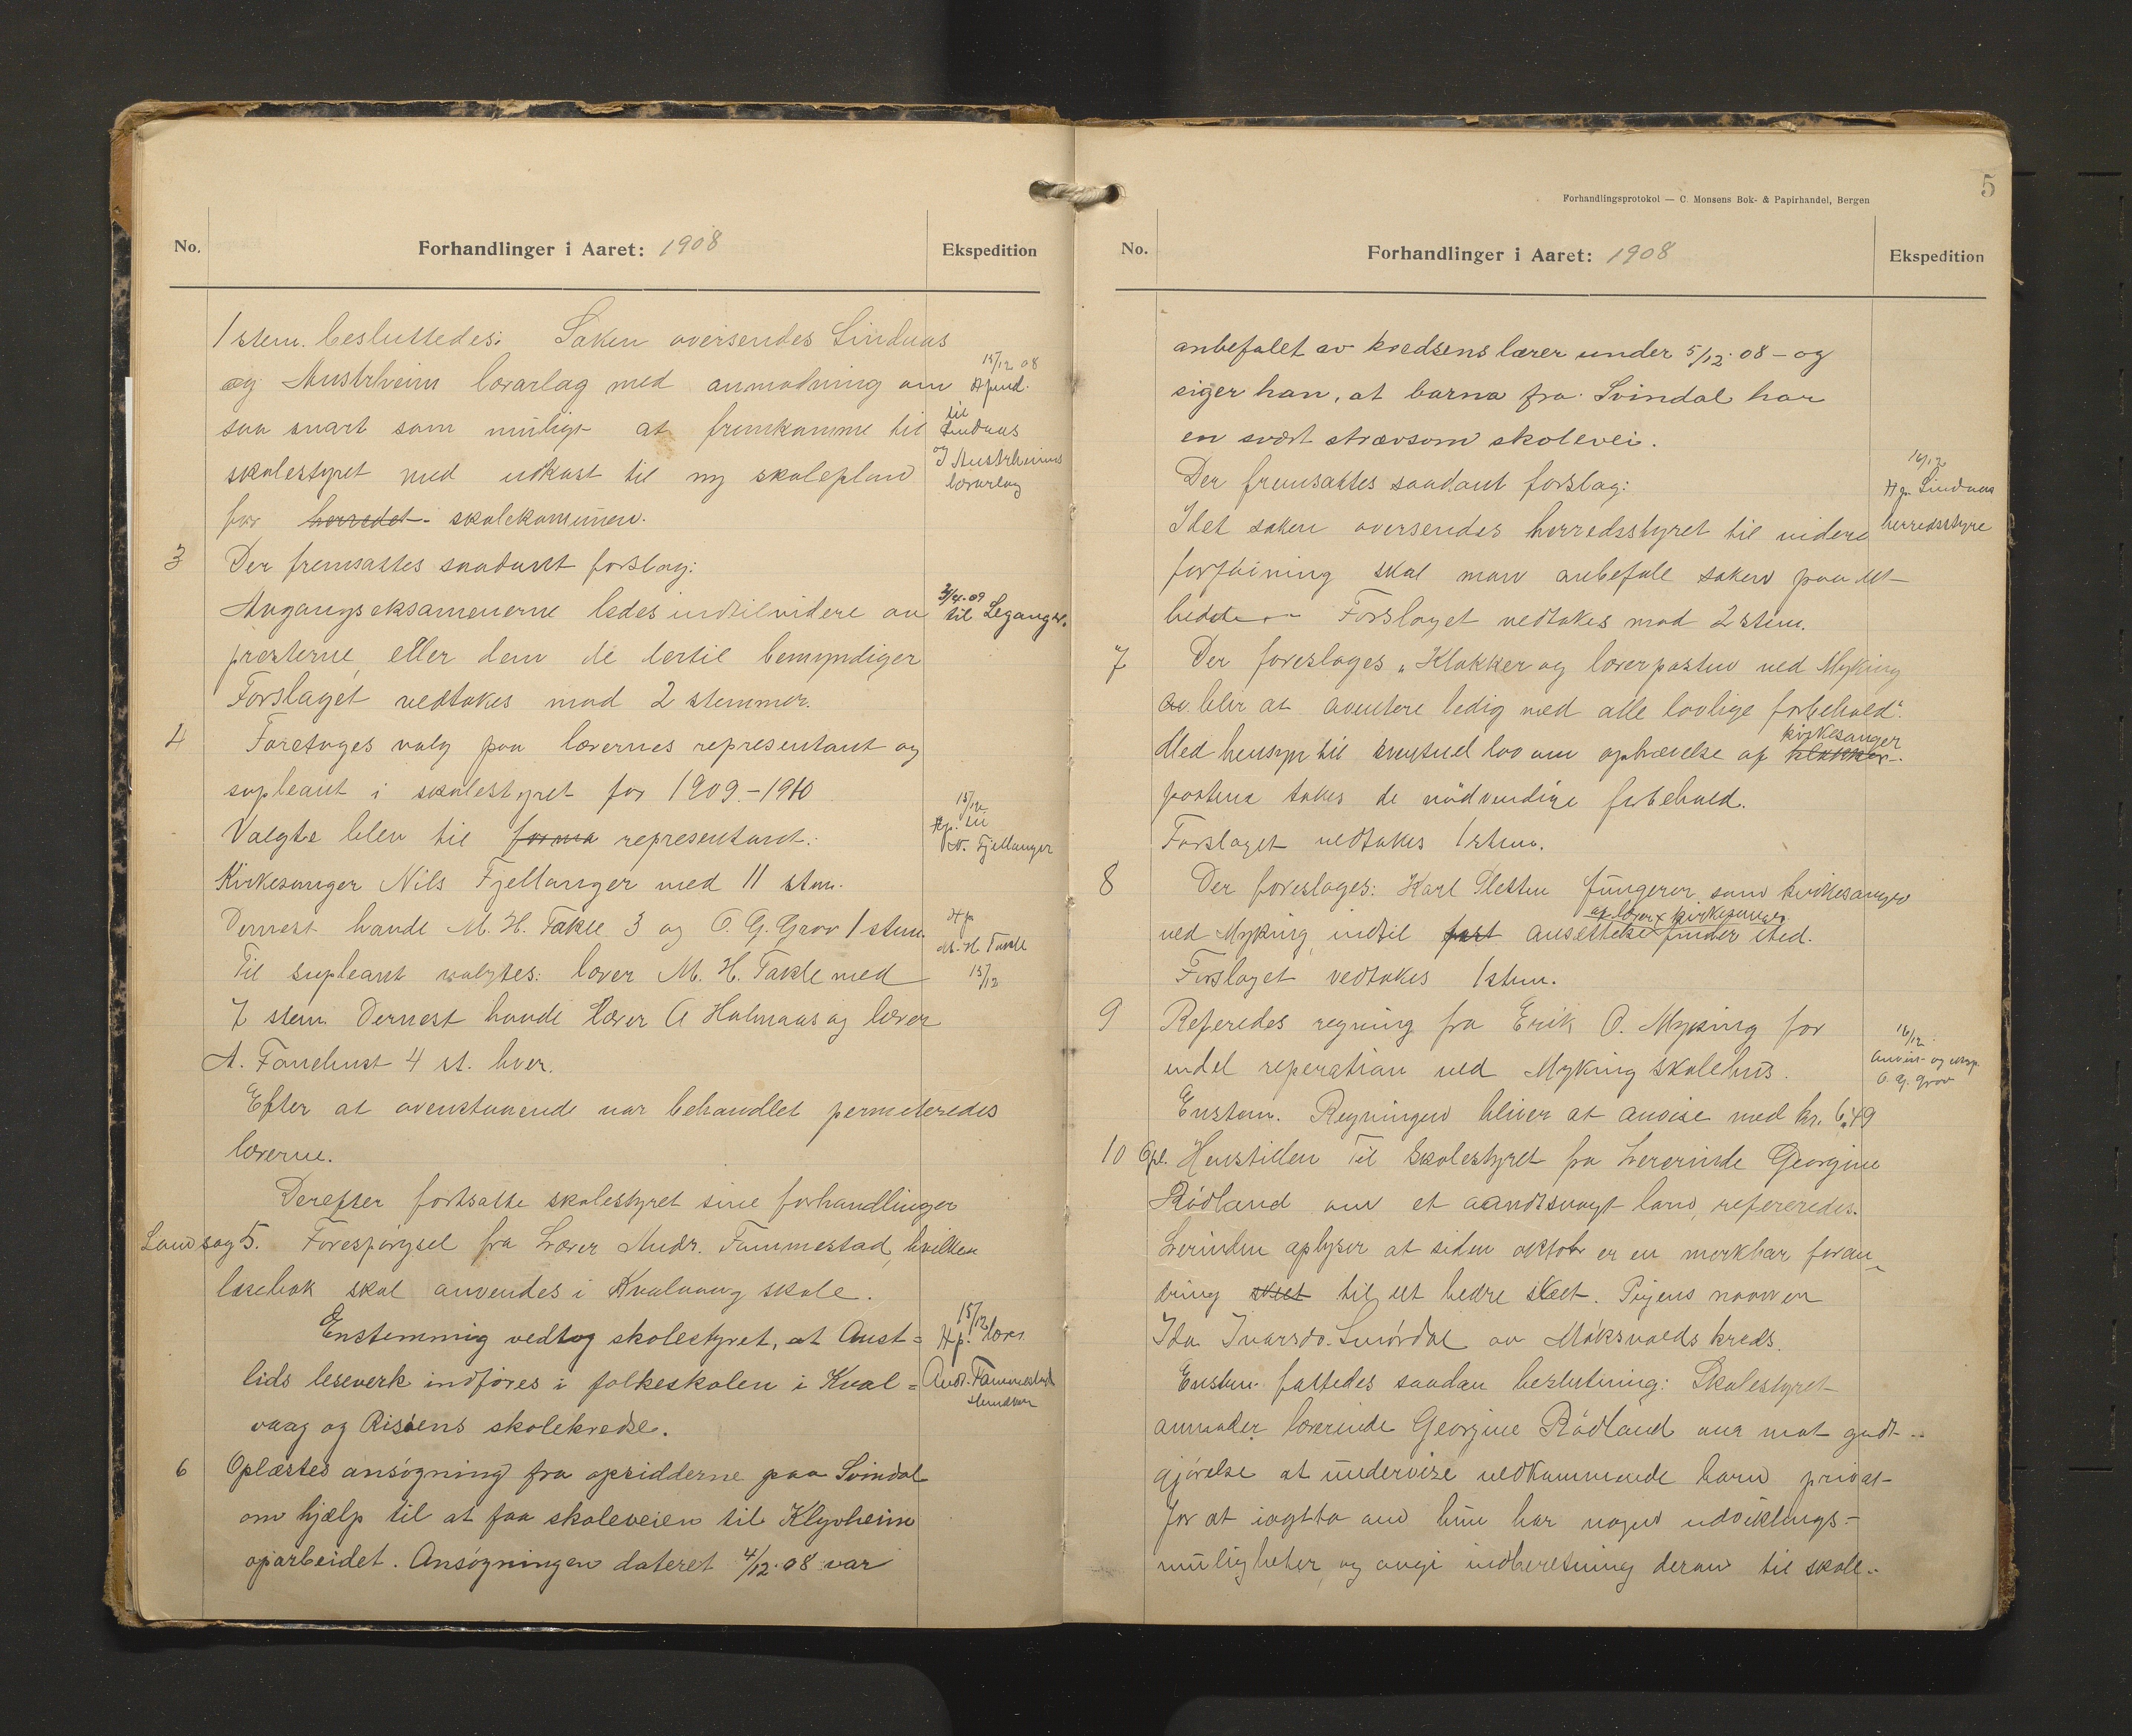 No.
Forhandlinger i Aaret: 1908
Ekspedition
1 stem. besluttedes: Saken oversendes Lindaas
og Austrheim lærarlag med anmodning om
saa snart som muligt at fremkomme til
skolestyret med utkast til ny skoleplan
for herredet. skolekommunen.
15/12 08
til
Lindaas
og Austrheims
lærarlag
3 Der fremsattes saadant forslag:
Avgangseksamenerne ledes indtil videre av
presterne, eller dem de dertil bemyndiger
Forslaget vedtokes mod 2 stemmer.
3/4-09
til Leganger.
4 Foretoges valg paa lærernes representant og
supleant i skolestyret for 1909-1910
Valgte blev til forma representant:
Kirkesanger Nils Fjellanger med 11 stem.
Dernest havde M. H. Takle 3 og O. G. Grov 1 stem.
Til supleant valgtes: lærer M. H. Takle med
7 stem. Dernest havde lærer A Holmaas og lærer
A. Fanehust 4 st. hver.
15/12
Hp. til
N. Fjellanger
Hp
M. H Takle
15/12
Efter at ovenstaaende var behandlet permiteredes
lærerne.
Derefter fortsatte skolestyret sine forhandlinger
5. Forespørgsel fra Lærer Andr. Fammestad, hvilken
læsebok skal anvendes i Kvalvaag skole.
Enstemmig vedtog skolestyret, at Aust=
lids leseverk indføres i folkeskolen i Kval=
vaag og Risøens skolekredse.
15/12
Hp. lærer
Andr. Fammestad
6 Oplæstes ansøgning fra opsidderne paa Svindal
om hjælp til at faa skoleveien til Klyvheim
oparbeidet. Ansøgningen dateret 4/12-08 var
5
Forhandlingsprotokol — C. Monsens Bok- & Papirhandel, Bergen
No.
Forhandlinger i Aaret: 1908
Ekspedition
anbefalet av kredsens lærer under 5/12-08 - og
siger han, at barna fra Svindal har
en svært strævsom skolevei.
Der fremsattes saadant forslag:
Idet saken oversendes herredsstyret til videre
forføining skal man anbefale saken paa det
bedste. - Forslaget vedtokes mod 2 stem.
16/12
Hp. Lindaas
herredsstyre
7 Der foreslages "Klokker og lærerposten ved Myking
av blir at avertere ledig med alle lovlige forbehold".
Med hensyn til eventuel lov om ophævelse af klokker- kirkesanger
postene takes de nødvendige forbehold.
Forslaget vedtokes 1 stem.
8 Der foreslages: Karl Sletten fungerer som kirkesanger
ved Myking, indtil fast ansettelse av lærer x kirkesanger finder sted.
Forslaget vedtokes 1 stem.
9 Referedes regning fra Erik O. Myking for
endel reperation ved Myking skolehus.
Enstem. Regningen bliver at anvise med kr. 6,49
16/12
anvist og eksp.
O. G. Grov
10 Opl. Henstillen til Skolestyret fra Lererinde Georgine
Rødland om et aandssvagt barn, refereredes.
Lærinden oplyser at siden oktobr er en merkbar foran-
dring skeet til det bedre skeet. Pigens navn er
Ida Ivarsdr. av Moksvolds kreds.
Enstem. fattedes saadan beslutning: Skolestyret
anmoder lærerinde Georgine Rødland om mot godt-
gjørelse at undervise vedkommende barn privat
for at iagtta om hun har nogen udviklings-
muligheter, og avgi indberetning derom til skole-